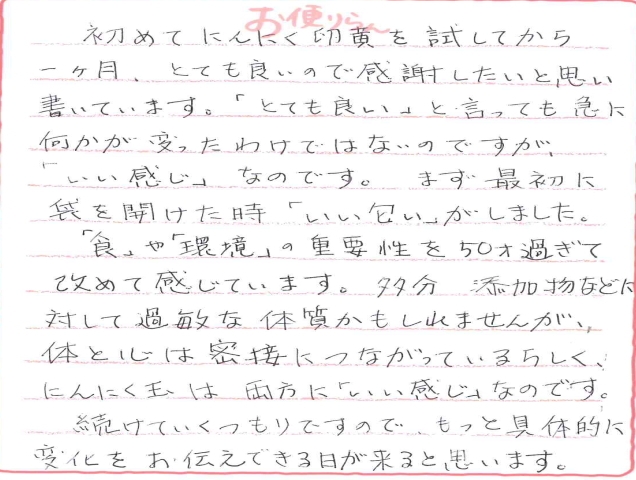 お便りらん
初めてにんにく卵黄を試してから
一ヶ月、とても良いので感謝したいと思い
書いています。「とても良い」と言っても急に
何かが変ったわけではないのですが、
「いい感じ」なのです。まず最初に
袋を開けた時「いい匂い」がしました。
「食」や「環境」の重要性を50才過ぎて
改めて感じています。多分 添加物などに
対して過敏な体質かもしれませんが、
体と心は密接につながっているらしく、
にんにく玉は両方に「いい感じ」なのです。
続けていくつもりですので、もっと具体的に
変化をお伝えできる日が来ると思います。